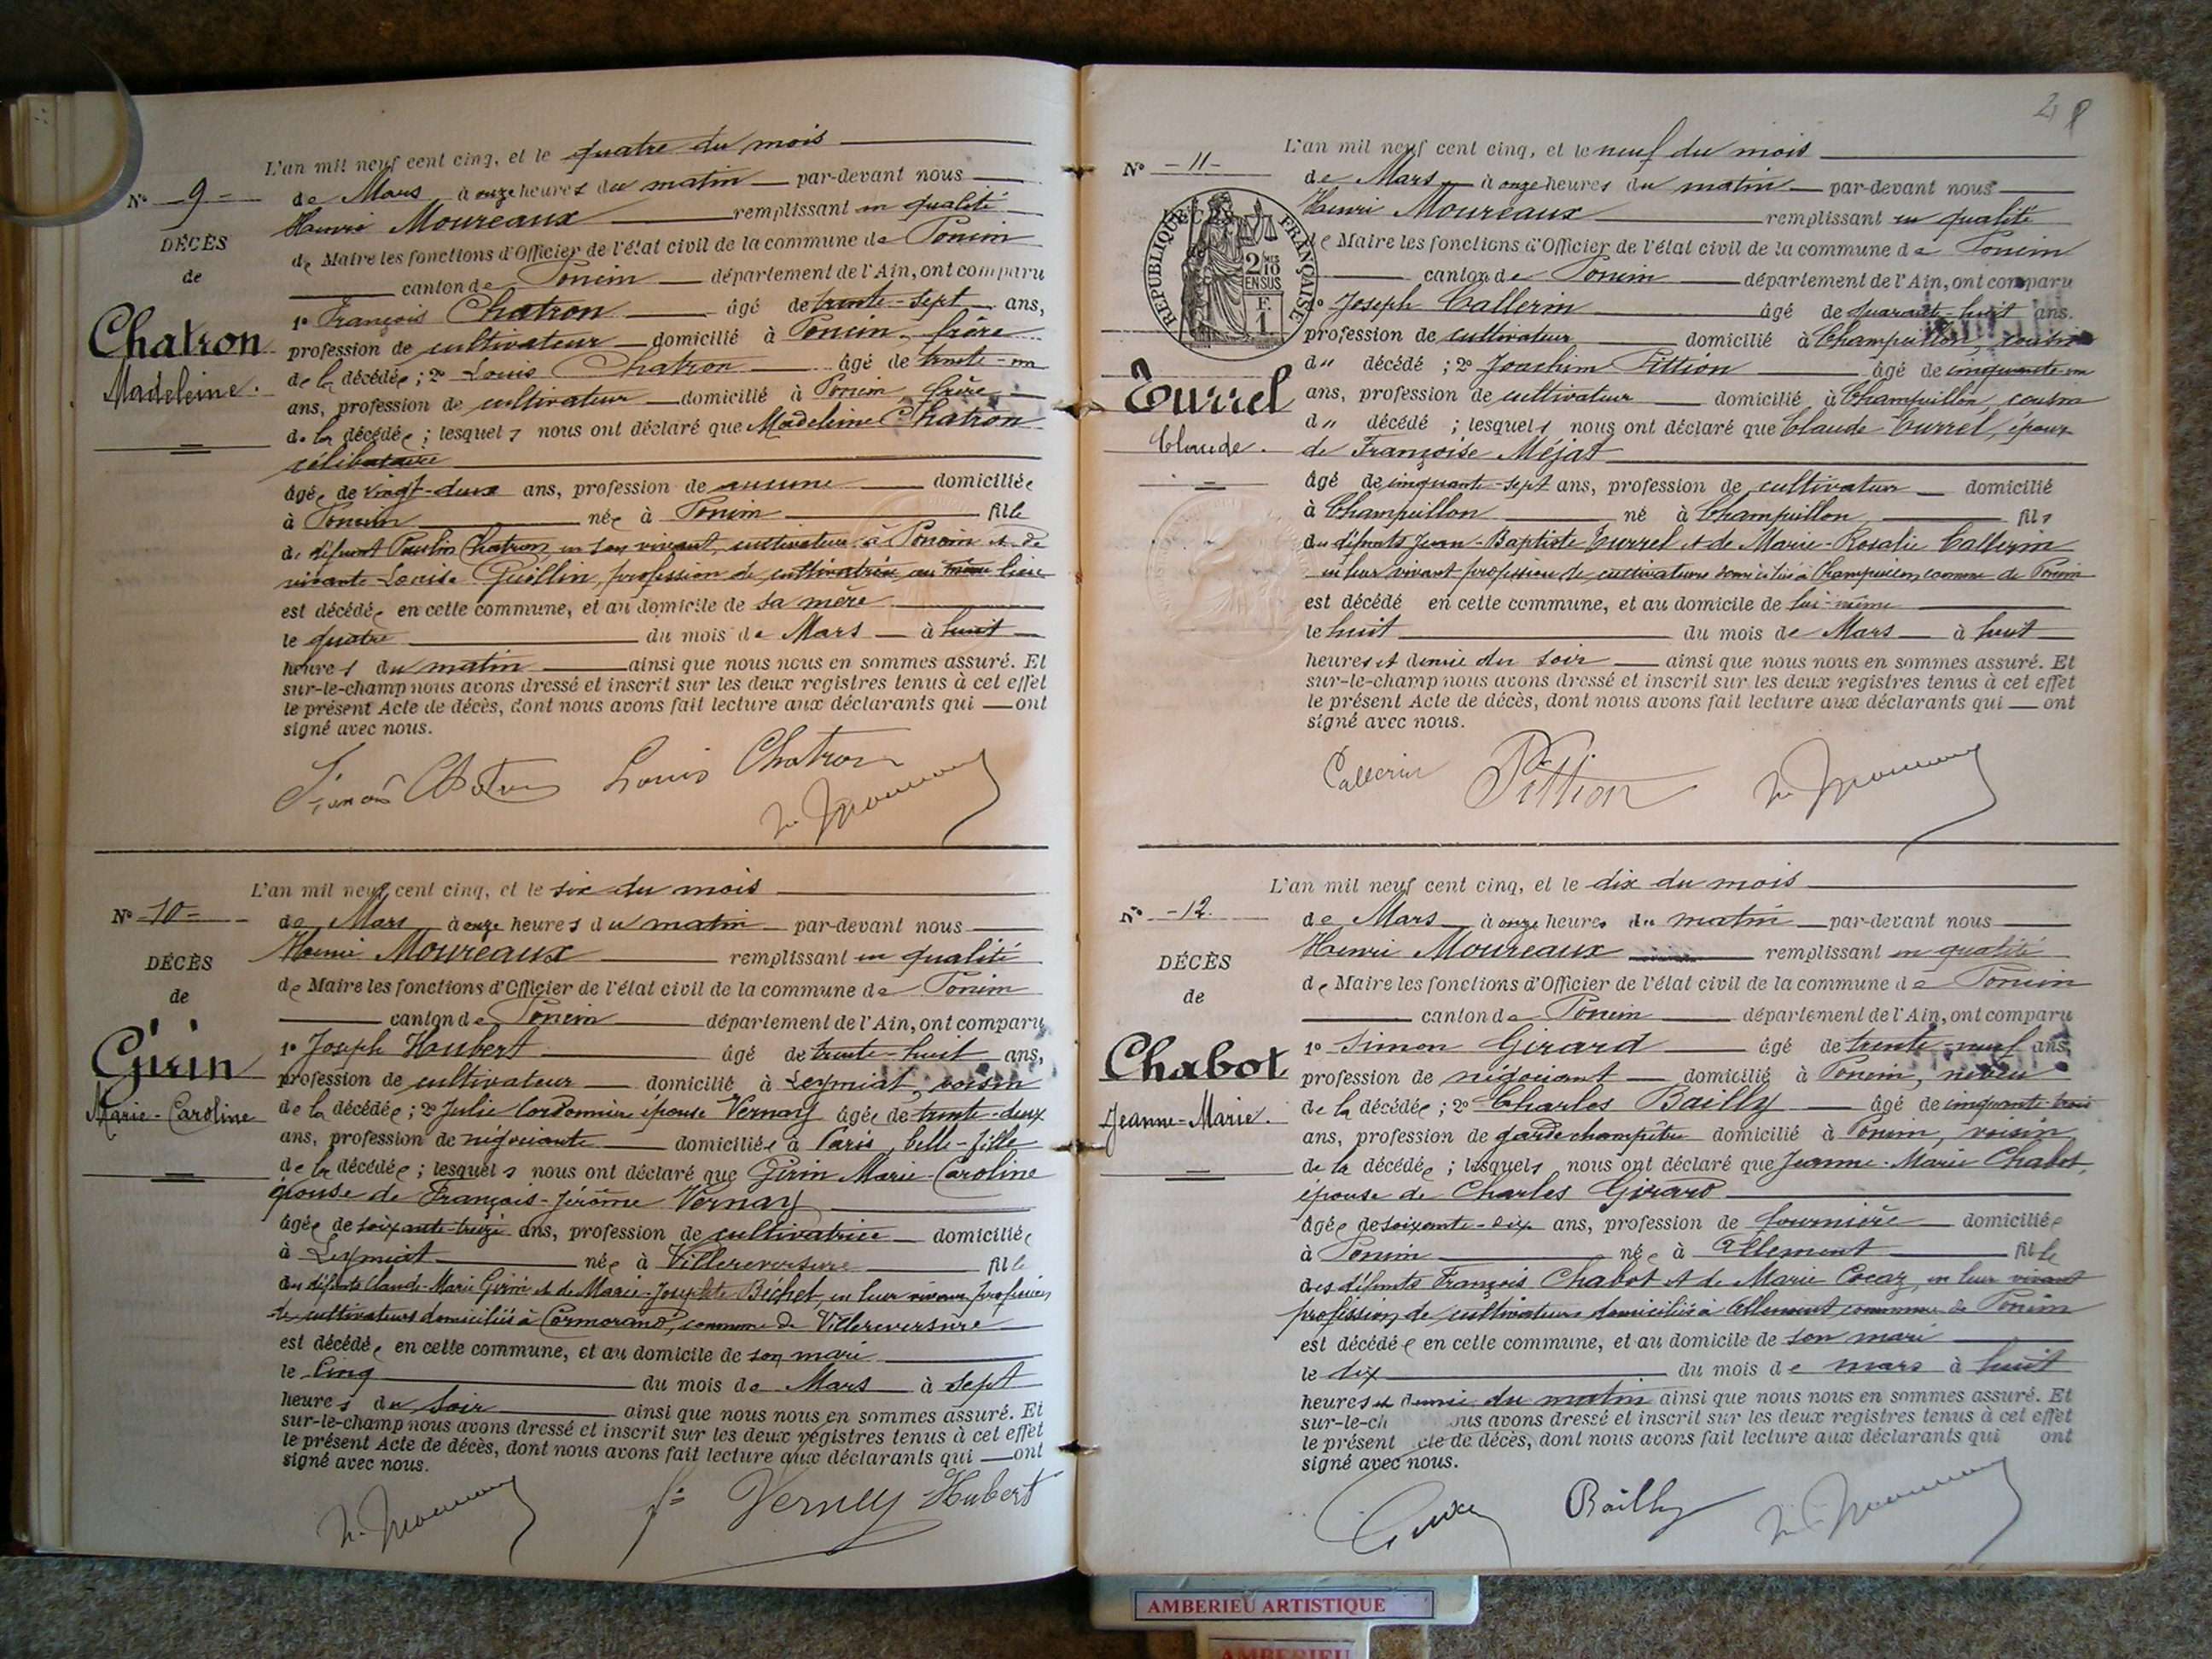 L'an mil neuf cent cinq, et le quatre du mois
N° 9
de Mars à onze heures du matin par-devant nous
Henri Moureaux remplissant en qualité
DÉCÈS
de Maire les fonctions d'Officier de l'état civil de la commune de Poncin
de
canton de Poncin département de l'Ain, ont comparu
1° François Chatron âgé de trente-sept ans,
Chatron
profession de cultivateur domicilié à Poncin, frère
de la décédée ; 2° Louis Chatron âgé de trente-un
Madeleine.
ans, profession de cultivateur domicilié à Poncin frère
de la décédée ; lesquels nous ont déclaré que Madeleine Chatron
célibataire
âgée de vingt-deux ans, profession de aucune domiciliée
à Poncin née à Poncin fille
de défunt Paulin Chatron en son vivant, cultivateur à Poncin et de
vivante Louise Guillin, profession de cultivatrice au même lieu
est décédée en cette commune, et au domicile de sa mère
le quatre du mois de Mars à huit
heures du matin ainsi que nous nous en sommes assuré. Et
sur-le-champ nous avons dressé et inscrit sur les deux registres tenus à cet effet
le présent Acte de décès, dont nous avons fait lecture aux déclarants qui ont
signé avec nous.
Louis Chatron
L'an mil neuf cent cinq, et le six du mois
N° 10
de Mars à onze heures du matin par-devant nous
Henri Moureaux remplissant en qualité
DÉCÈS
de Maire les fonctions d'Officier de l'état civil de la commune de Poncin
de
canton de Poncin département de l'Ain, ont comparu
1° Joseph Hubert âgé de trente-huit ans,
Girin
profession de cultivateur domicilié à Leymiat, voisin
Marie-Caroline
de la décédée ; 2° Julie Cordonnier épouse Vernay âgée de trente-deux
ans, profession de négociante domiciliée à Paris, belle-fille
de la décédée ; lesquels nous ont déclaré que Girin Marie-Caroline
épouse de François-Jérôme Vernay
âgée de soixante-treize ans, profession de cultivatrice domiciliée
à Leymiat née à Villereversure fille
des défunts Claude-Marie Girin et de Marie-Josephte Béchet, en leur vivant profession
de cultivateurs domiciliés à Cormorand, commune de Villereversure
est décédée en cette commune, et au domicile de son mari
le Cinq du mois de Mars à sept
heures du soir ainsi que nous nous en sommes assuré. Et
sur-le-champ nous avons dressé et inscrit sur les deux registres tenus à cet effet
le présent Acte de décès, dont nous avons fait lecture aux déclarants qui ont
signé avec nous.
Vernay Hubert
L'an mil neuf cent cinq, et le neuf du mois
N° 11
de Mars à onze heures du matin par-devant nous
RÉPUBLIQUE FRANÇAISE
Henri Moureaux remplissant en qualité
de Maire les fonctions d'Officier de l'état civil de la commune de Poncin
2/10 EN SUS
F. 1
canton de Poncin département de l'Ain, ont comparu
1° Joseph Callerin âgé de quarante-huit ans.
profession de cultivateur domicilié à Champeillon, cousin
du décédé ; 2° Joachim Pittion âgé de cinquante-un
Turrel
ans, profession de cultivateur domicilié à Champeillon, cousin
du décédé ; lesquels nous ont déclaré que Claude Turrel, époux
Claude.
de Françoise Méjat
âgé de cinquante-sept ans, profession de cultivateur domicilié
à Champeillon né à Champeillon fils
des défunts Jean-Baptiste Turrel et de Marie-Rosalie Callerin
en leur vivant profession de cultivateurs domiciliés à Champeillon commune de Poncin
est décédé en cette commune, et au domicile de lui-même
le huit du mois de Mars à huit
heures et demie du soir ainsi que nous nous en sommes assuré. Et
sur-le-champ nous avons dressé et inscrit sur les deux registres tenus à cet effet
le présent Acte de décès, dont nous avons fait lecture aux déclarants qui ont
signé avec nous.
Callerin Pittion
L'an mil neuf cent cinq, et le dix du mois
N° 12.
de Mars à onze heures du matin par-devant nous
Henri Moureaux remplissant en qualité
DÉCÈS
de Maire les fonctions d'Officier de l'état civil de la commune de Poncin
de
canton de Poncin département de l'Ain, ont comparu
1° Simon Girard âgé de trente-neuf ans,
Chabot
profession de négociant domicilié à Poncin, neveu
de la décédée ; 2° Charles Bailly âgé de cinquante-trois
Jeanne-Marie.
ans, profession de garde champêtre domicilié à Poncin, voisin
de la décédée ; lesquels nous ont déclaré que Jeanne-Marie Chabot,
épouse de Charles Girard
âgée de soixante-dix ans, profession de fournière domiciliée
à Poncin née à Allement fille
des défunts François Chabot et de Marie Cocaz, en leur vivant
profession de cultivateurs domiciliés à Allement commune de Poncin
est décédée en cette commune, et au domicile de son mari
le dix du mois de mars à huit
heures et demie du matin ainsi que nous nous en sommes assuré. Et
sur-le-ch ous avons dressé et inscrit sur les deux registres tenus à cet effet
le présent cte de décès, dont nous avons fait lecture aux déclarants qui ont
signé avec nous.
Bailly
AMBERIEU ARTISTIQUE
AMBERIEU